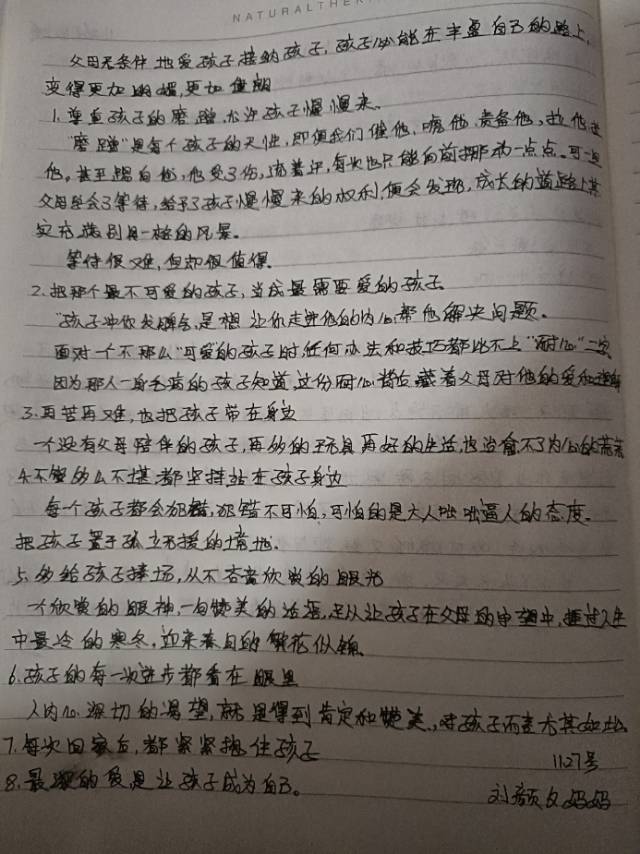 NATURALTHER
父母无条件地爱孩子接纳孩子,孩子心能在丰盈自己的路上,
变得更加明媚,更加健朗
1.尊重孩子的磨蹭,允许孩子慢慢来、
"磨蹭"是每个孩子的天性,即便我们催他、唬他、责备他、拉他
他。甚至踢自他,他受了伤,流着汗,每次也只能向前挪动一点点。可一旦
父母学会了等待,给予了孩子慢慢来的权利,便会发现,成长的道路上其
实充满别具一格的风景。
等待很难,但却很值得.
2.把那个最不可爱的孩子,当成最需要爱的孩子
"孩子冲你发脾气,是想让你走进他的内心,帮他解决问题。
面对一个不那么"可爱"的孩子时,任何办法和技巧都比不上"耐心"二字
因为那人一身毛病的孩子知道,这份耐心背后藏着父母对他的爱和理解
3.再苦再难,也把孩子带在身边
一个没有父母陪伴的孩子,再多的玩具再好的生活,也治愈不了内心的荒芜
4.不管多么不堪,都坚持站在孩子身边
每个孩子都会犯错,犯错不可怕,可怕的是大人咄咄逼人的态度.
把孩子置于孤立无援的境地.
5.多给孩子捧场,从不吝啬欣赏的眼光
一个欣赏的眼神,一句赞美的话语,足以让孩子在父母的中,挺过人生
中最冷的寒冬,迎来春日的繁花似锦.
6.孩子的每一次进步都看在眼里
人内心深切的渴望,就是得到肯定和赞美,,对孩子而言尤其如此
7.每次回家后,都紧紧抱住孩子
8.最深的爱是让孩子成为自己。
1127号
刘颜夕妈妈